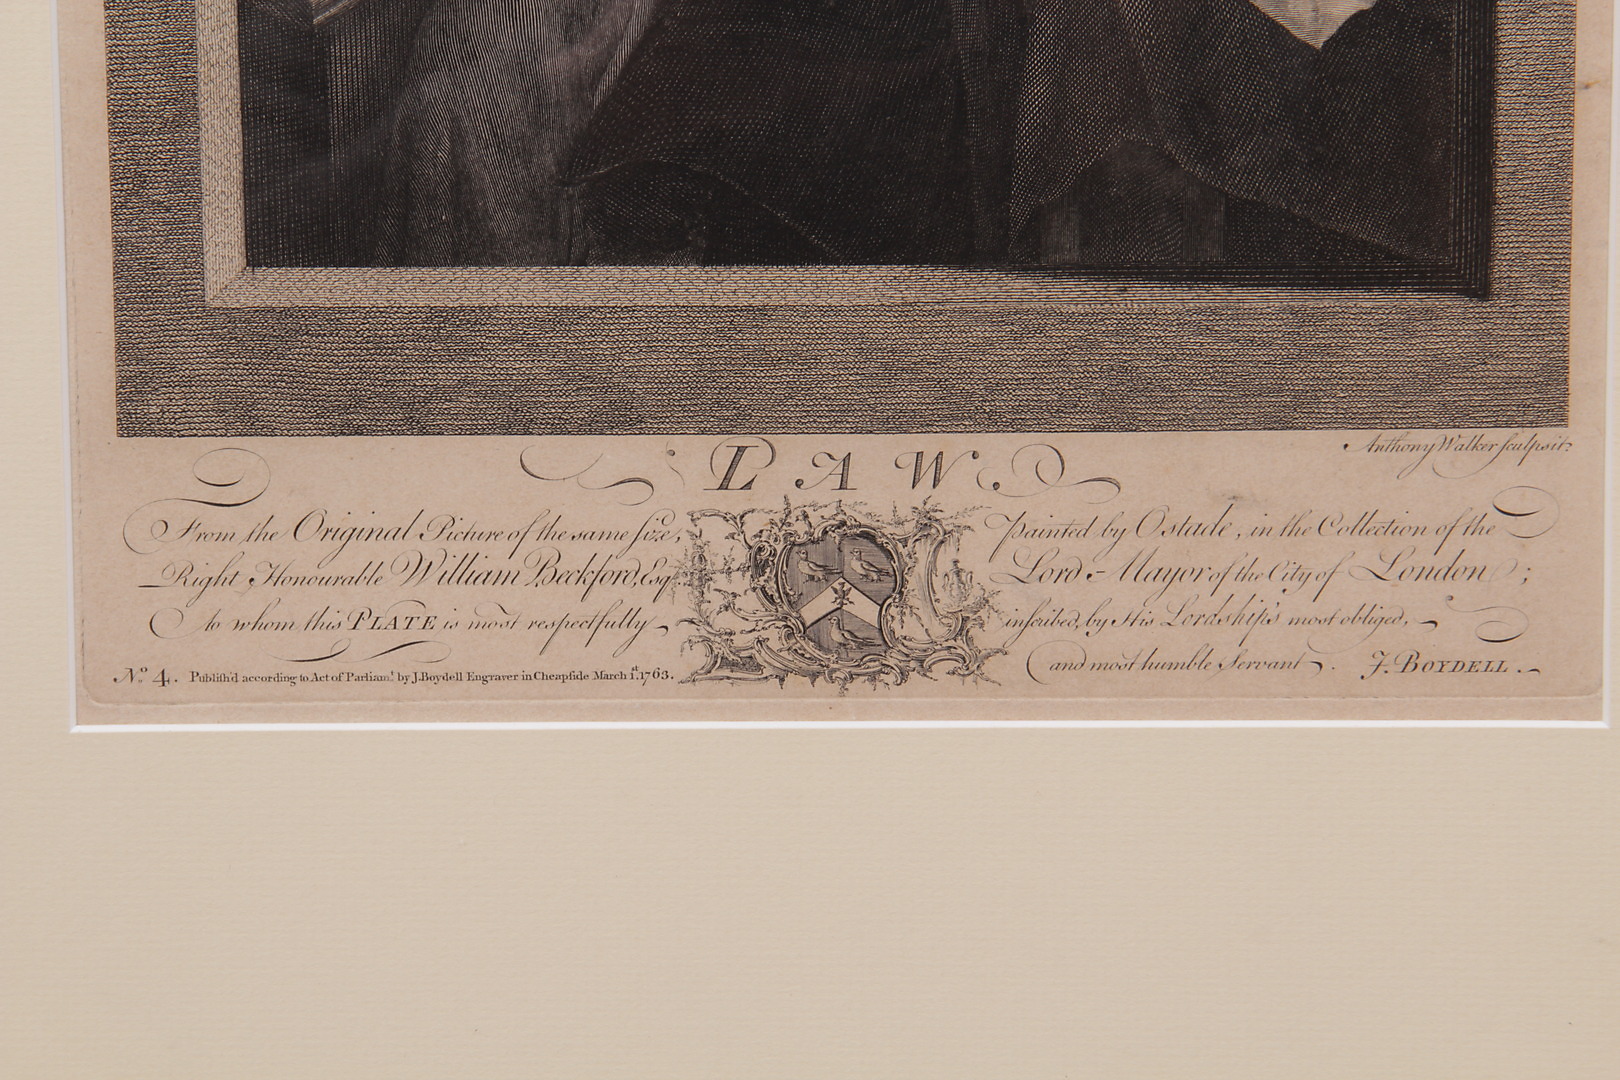 Anthony Walker sculpsit.
LAW
From the Original Picture of the same size, painted by Ostade, in the Collection of the
Right Honourable William Beckford, Esqr. Lord-Mayor of the City of London;
to whom this PLATE is most respectfully inscribed, by His Lordship's most obliged,
and most humble Servant. J. BOYDELL.
No. 4. Publish'd according to Act of Parliamt. by J. Boydell Engraver in Cheapside March 1st. 1763.